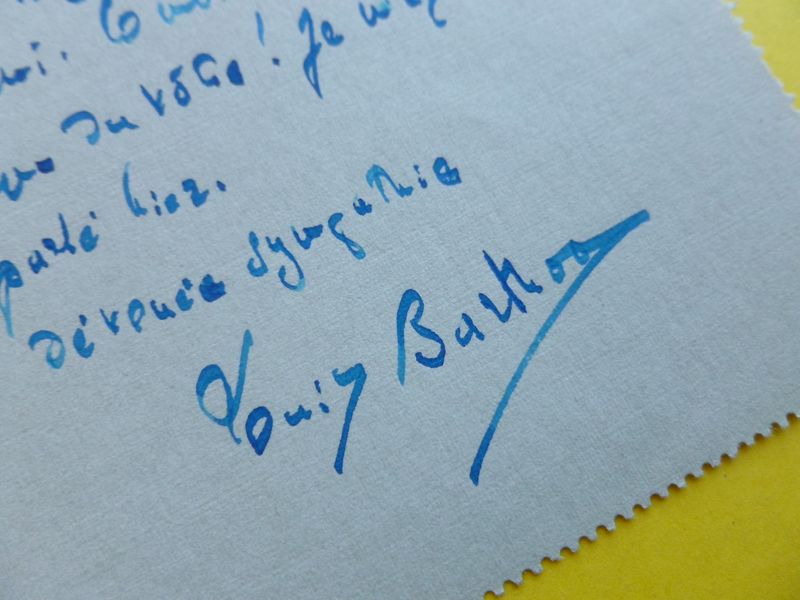 du vôtre! Je
parlé hier.
Dévouée sympathie
Louis Barthou